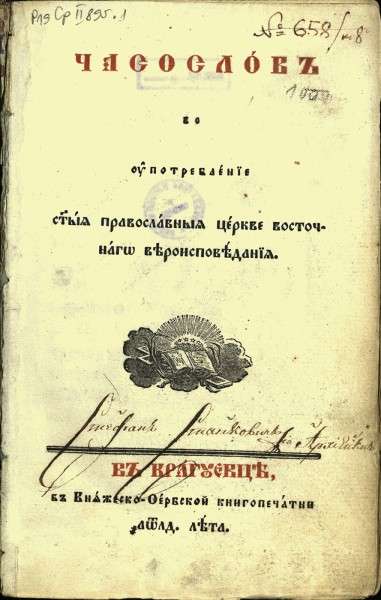 Р19 Ср II 895.1
№ 658
ЧАСОСЛО́ВЪ
во
ᲂу҆потребле́нїе
ст҃ы́ѧ правосла́вныѧ це́ркве восточ-
на́гѡ вѣроисповѣ́данїѧ.
Стефанъ Стаиковичъ
ВЪ КРАГꙋЕВЦѢ,
въ Кнѧ́жеско-Се́рбской книгопеча́тни
҂аѡлд. лѣ́та.